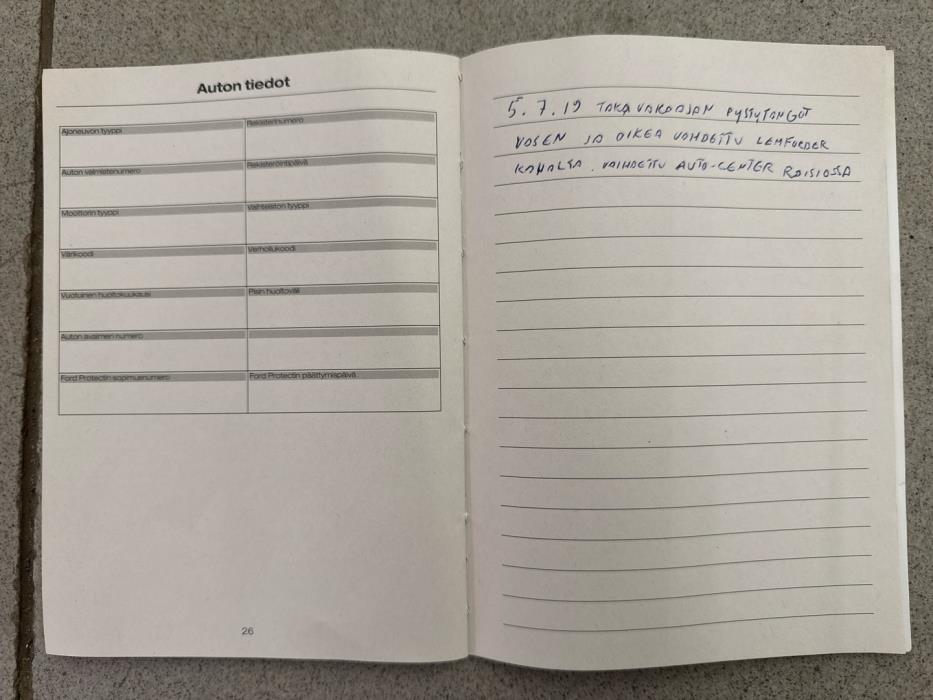 Auton tiedot
Ajoneuvon tyyppi
Rekisterinumero
Auton valmistenumero
Rekisteröintipäivä
Moottorin tyyppi
Vaihteiston tyyppi
Värikoodi
Verhoilukoodi
Vuotuinen huoltokuukausi
Pisin huoltoväli
Auton avaimen numero
Ford Protectin sopimusnumero
Ford Protectin päättymispäivä
26
5.7.19 TAKA VAKAAJAN PYSTYTANGOT
VASEN JA OIKEA VAIHDETTU LEMFÖRDER
VAIHDETTU AUTO-CENTER RAISIOSSA